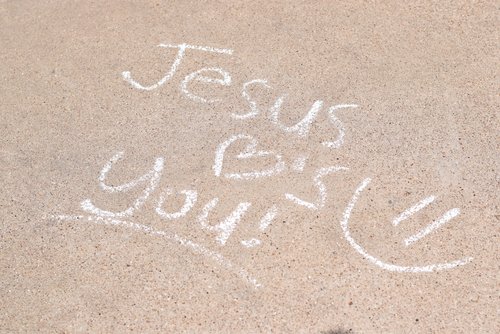 Jesus
♥'s
you!
=)